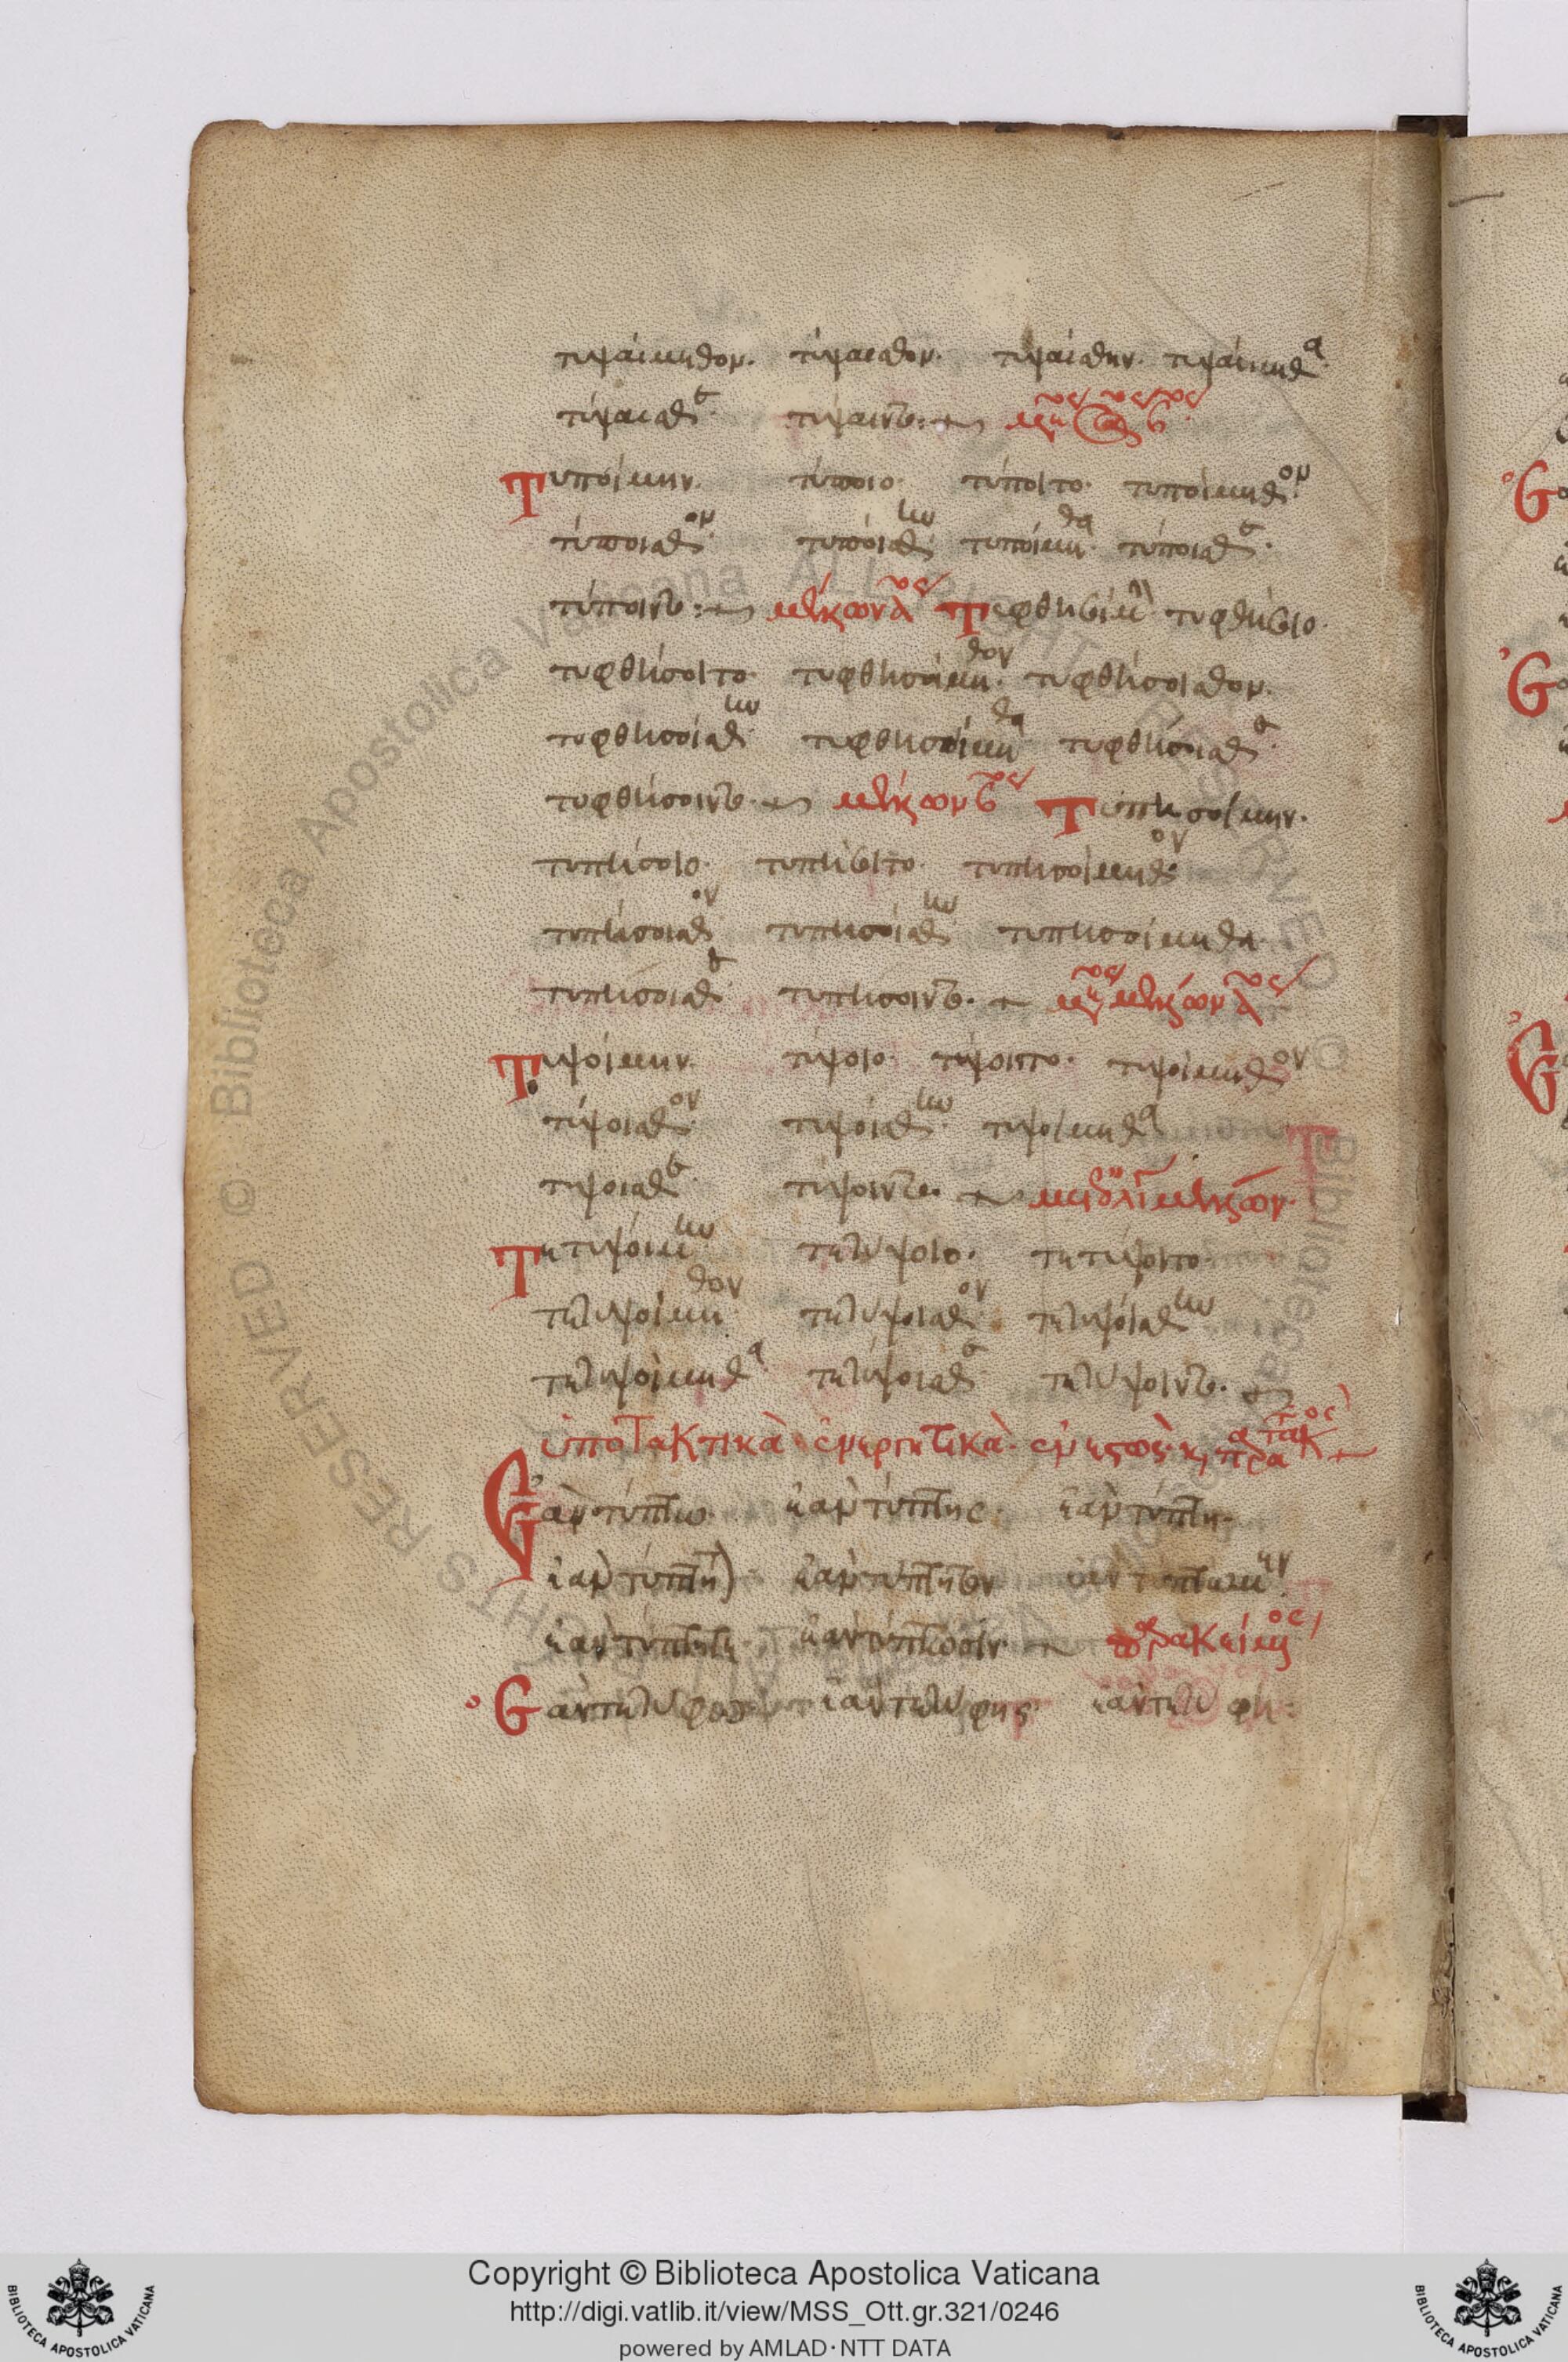 τυψαίμεθον. τύψαισθον. τυψαίσθην. τυψαίμεθα.
τύψαισθε. τύψαιντο:
Τυποίμην. τύποιο. τύποιτο. τυποίμεθον.
τύποισθον. τυποίσθην. τυποίμεθα. τύποισθε.
τύποιντο: μέλλων α΄ος Τυφθησοίμην. τυφθήσοιο.
τυφθήσοιτο. τυφθησοίμεθον. τυφθήσοισθον.
τυφθησοίσθην. τυφθησοίμεθα. τυφθήσοισθε.
τυφθήσοιντο. μέλλων β΄ος Τυπησοίμην.
τυπήσοιο. τυπήσοιτο. τυπησοίμεθον.
τυπήσοισθον. τυπησοίσθην. τυπησοίμεθα.
τυπήσοισθε. τυπήσοιντο.
Τυψοίμην. τύψοιο. τύψοιτο. τυψοίμεθον.
τύψοισθον. τυψοίσθην. τυψοίμεθα
τύψοισθε. τύψοιντο. μετ' ὀλίγον μέλλων.
Τετυψοίμην. τετύψοιο. τετύψοιτο.
τετυψοίμεθον. τετύψοισθον. τετυψοίσθην
τετυψοίμεθα τετύψοισθε τετύψοιντο.
ὑποτακτικὰ ἐνεργητικὰ. ἐνεστὼς καὶ παρατατικός
Ἐὰν τύπτω. ἐὰν τύπτης. ἐὰν τύπτη.
ἐὰν τύπτητον. ἐὰν τύπτητον ἐὰν τύπτωμεν.
ἐὰν τύπτητε. ἐὰν τύπτωσιν. παρακείμενος
Ἐὰν τετύφω ἐὰν τετύφης. ἐὰν τετύφη.
Copyright © Biblioteca Apostolica Vaticana
http://digi.vatlib.it/view/MSS_Ott.gr.321/0246
powered by AMLAD·NTT DATA